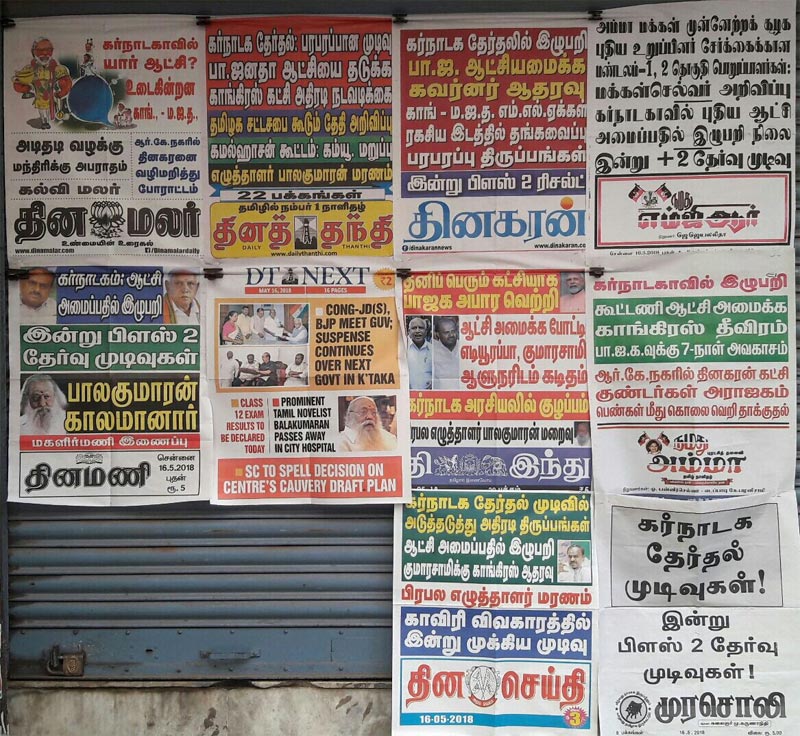 கர்நாடகாவில்
யார் ஆட்சி?
உடைகின்றன
காங்., - ம.ஜ.த.,
அடிதடி வழக்கு
மந்திரிக்கு அபராதம்
கல்வி மலர்
ஆர்.கே.நகரில்
தினகரனை
வழிமறித்து
போராட்டம்
தின மலர்
உண்மையின் உரைகல்
www.dinamalar.com
/Dinamalardaily
கர்நாடக தேர்தல்: பரபரப்பான முடிவு
பா.ஜனதா ஆட்சியை தடுக்க
காங்கிரஸ் கட்சி அதிரடி நடவடிக்கை
தமிழக சட்டசபை கூடும் தேதி அறிவிப்பு
கமல்ஹாசன் கூட்டம்: கம்யூ. மறுப்பு
எழுத்தாளர் பாலகுமாரன் மரணம்
22 பக்கங்கள்
தமிழில் நம்பர் 1 நாளிதழ்
தினத் தந்தி
DAILY THANTHI
www.dailythanthi.com
கர்நாடக தேர்தலில் இழுபறி
பா.ஜ. ஆட்சியமைக்க
கவர்னர் ஆதரவு
காங் - ம.ஜ.த. எம்.எல்.ஏக்கள்
ரகசிய இடத்தில் தங்கவைப்பு
பரபரப்பு திருப்பங்கள்
இன்று பிளஸ் 2 ரிசல்ட்
தினகரன்
/dinakarannews
www.dinakaran.com
அம்மா மக்கள் முன்னேற்றக் கழக
புதிய உறுப்பினர் சேர்க்கைக்கான
மண்டலம்-1, 2 தொகுதி பொறுப்பாளர்கள்:
மக்கள்செல்வர் அறிவிப்பு
கர்நாடகாவில் புதிய ஆட்சி
அமைப்பதில் இழுபறி நிலை
இன்று +2 தேர்வு முடிவு
நமது
எம்ஜிஆர்
நிறுவனர் ஜெ ஜெயலலிதா
சென்னை 16.5.2018
கர்நாடகம்: ஆட்சி
அமைப்பதில் இழுபறி
இன்று பிளஸ் 2
தேர்வு முடிவுகள்
பாலகுமாரன்
காலமானார்
மகளிர்மணி இணைப்பு
தினமணி
சென்னை
16.5.2018
புதன்
ரூ. 5
DT NEXT
₹2
MAY 16, 2018
16 PAGES
CONG-JD(S),
BJP MEET GUV;
SUSPENSE
CONTINUES
OVER NEXT
GOVT IN K'TAKA
CLASS
12 EXAM
RESULTS TO
BE DECLARED
TODAY
PROMINENT
TAMIL NOVELIST
BALAKUMARAN
PASSES AWAY
IN CITY HOSPITAL
SC TO SPELL DECISION ON
CENTRE'S CAUVERY DRAFT PLAN
தனிப் பெரும் கட்சியாக
பாஜக அபார வெற்றி
ஆட்சி அமைக்க போட்டி
எடியூரப்பா, குமாரசாமி
ஆளுநரிடம் கடிதம்
கர்நாடக அரசியலில் குழப்பம்
பிரபல எழுத்தாளர் பாலகுமாரன் மறைவு
இந்து
கர்நாடகாவில் இழுபறி
கூட்டணி ஆட்சி அமைக்க
காங்கிரஸ் தீவிரம்
பா.ஐ.க.வுக்கு 7-நாள் அவகாசம்
ஆர்.கே.நகரில் தினகரன் கட்சி
குண்டர்கள் அராஜகம்
பெண்கள் மீது கொலை வெறி தாக்குதல்
நமது
புரட்சித் தலைவி
அம்மா
கர்நாடக தேர்தல் முடிவில்
அடுத்தடுத்து அதிரடி திருப்பங்கள்
ஆட்சி அமைப்பதில் இழுபறி
குமாரசாமிக்கு காங்கிரஸ் ஆதரவு
பிரபல எழுத்தாளர் மரணம்
காவிரி விவகாரத்தில்
இன்று முக்கிய முடிவு
தின செய்தி
16-05-2018
3
கர்நாடக
தேர்தல்
முடிவுகள்!
இன்று
பிளஸ் 2 தேர்வு
முடிவுகள்!
முரசொலி
16.5.2018
விலை ரூ. 5.00